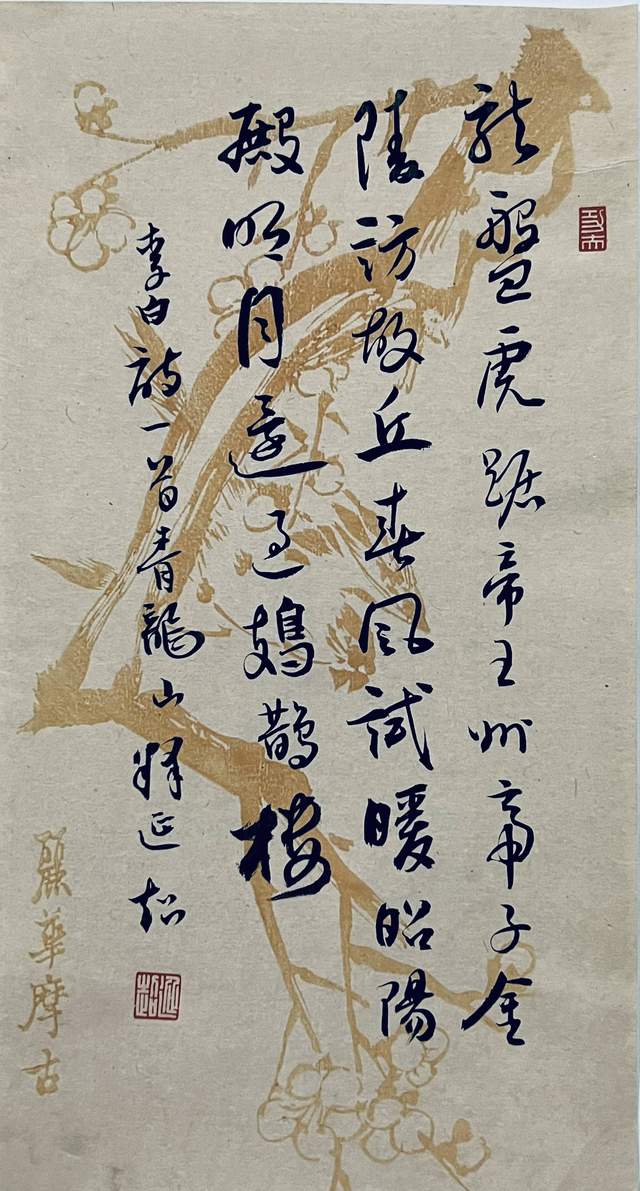 龍盤虎踞帝王州帝子金
陵訪故丘春風試暖昭陽
殿明月還過鳷鵲樓
李白詩一首青龍山釋延超
延超
麗華摩古